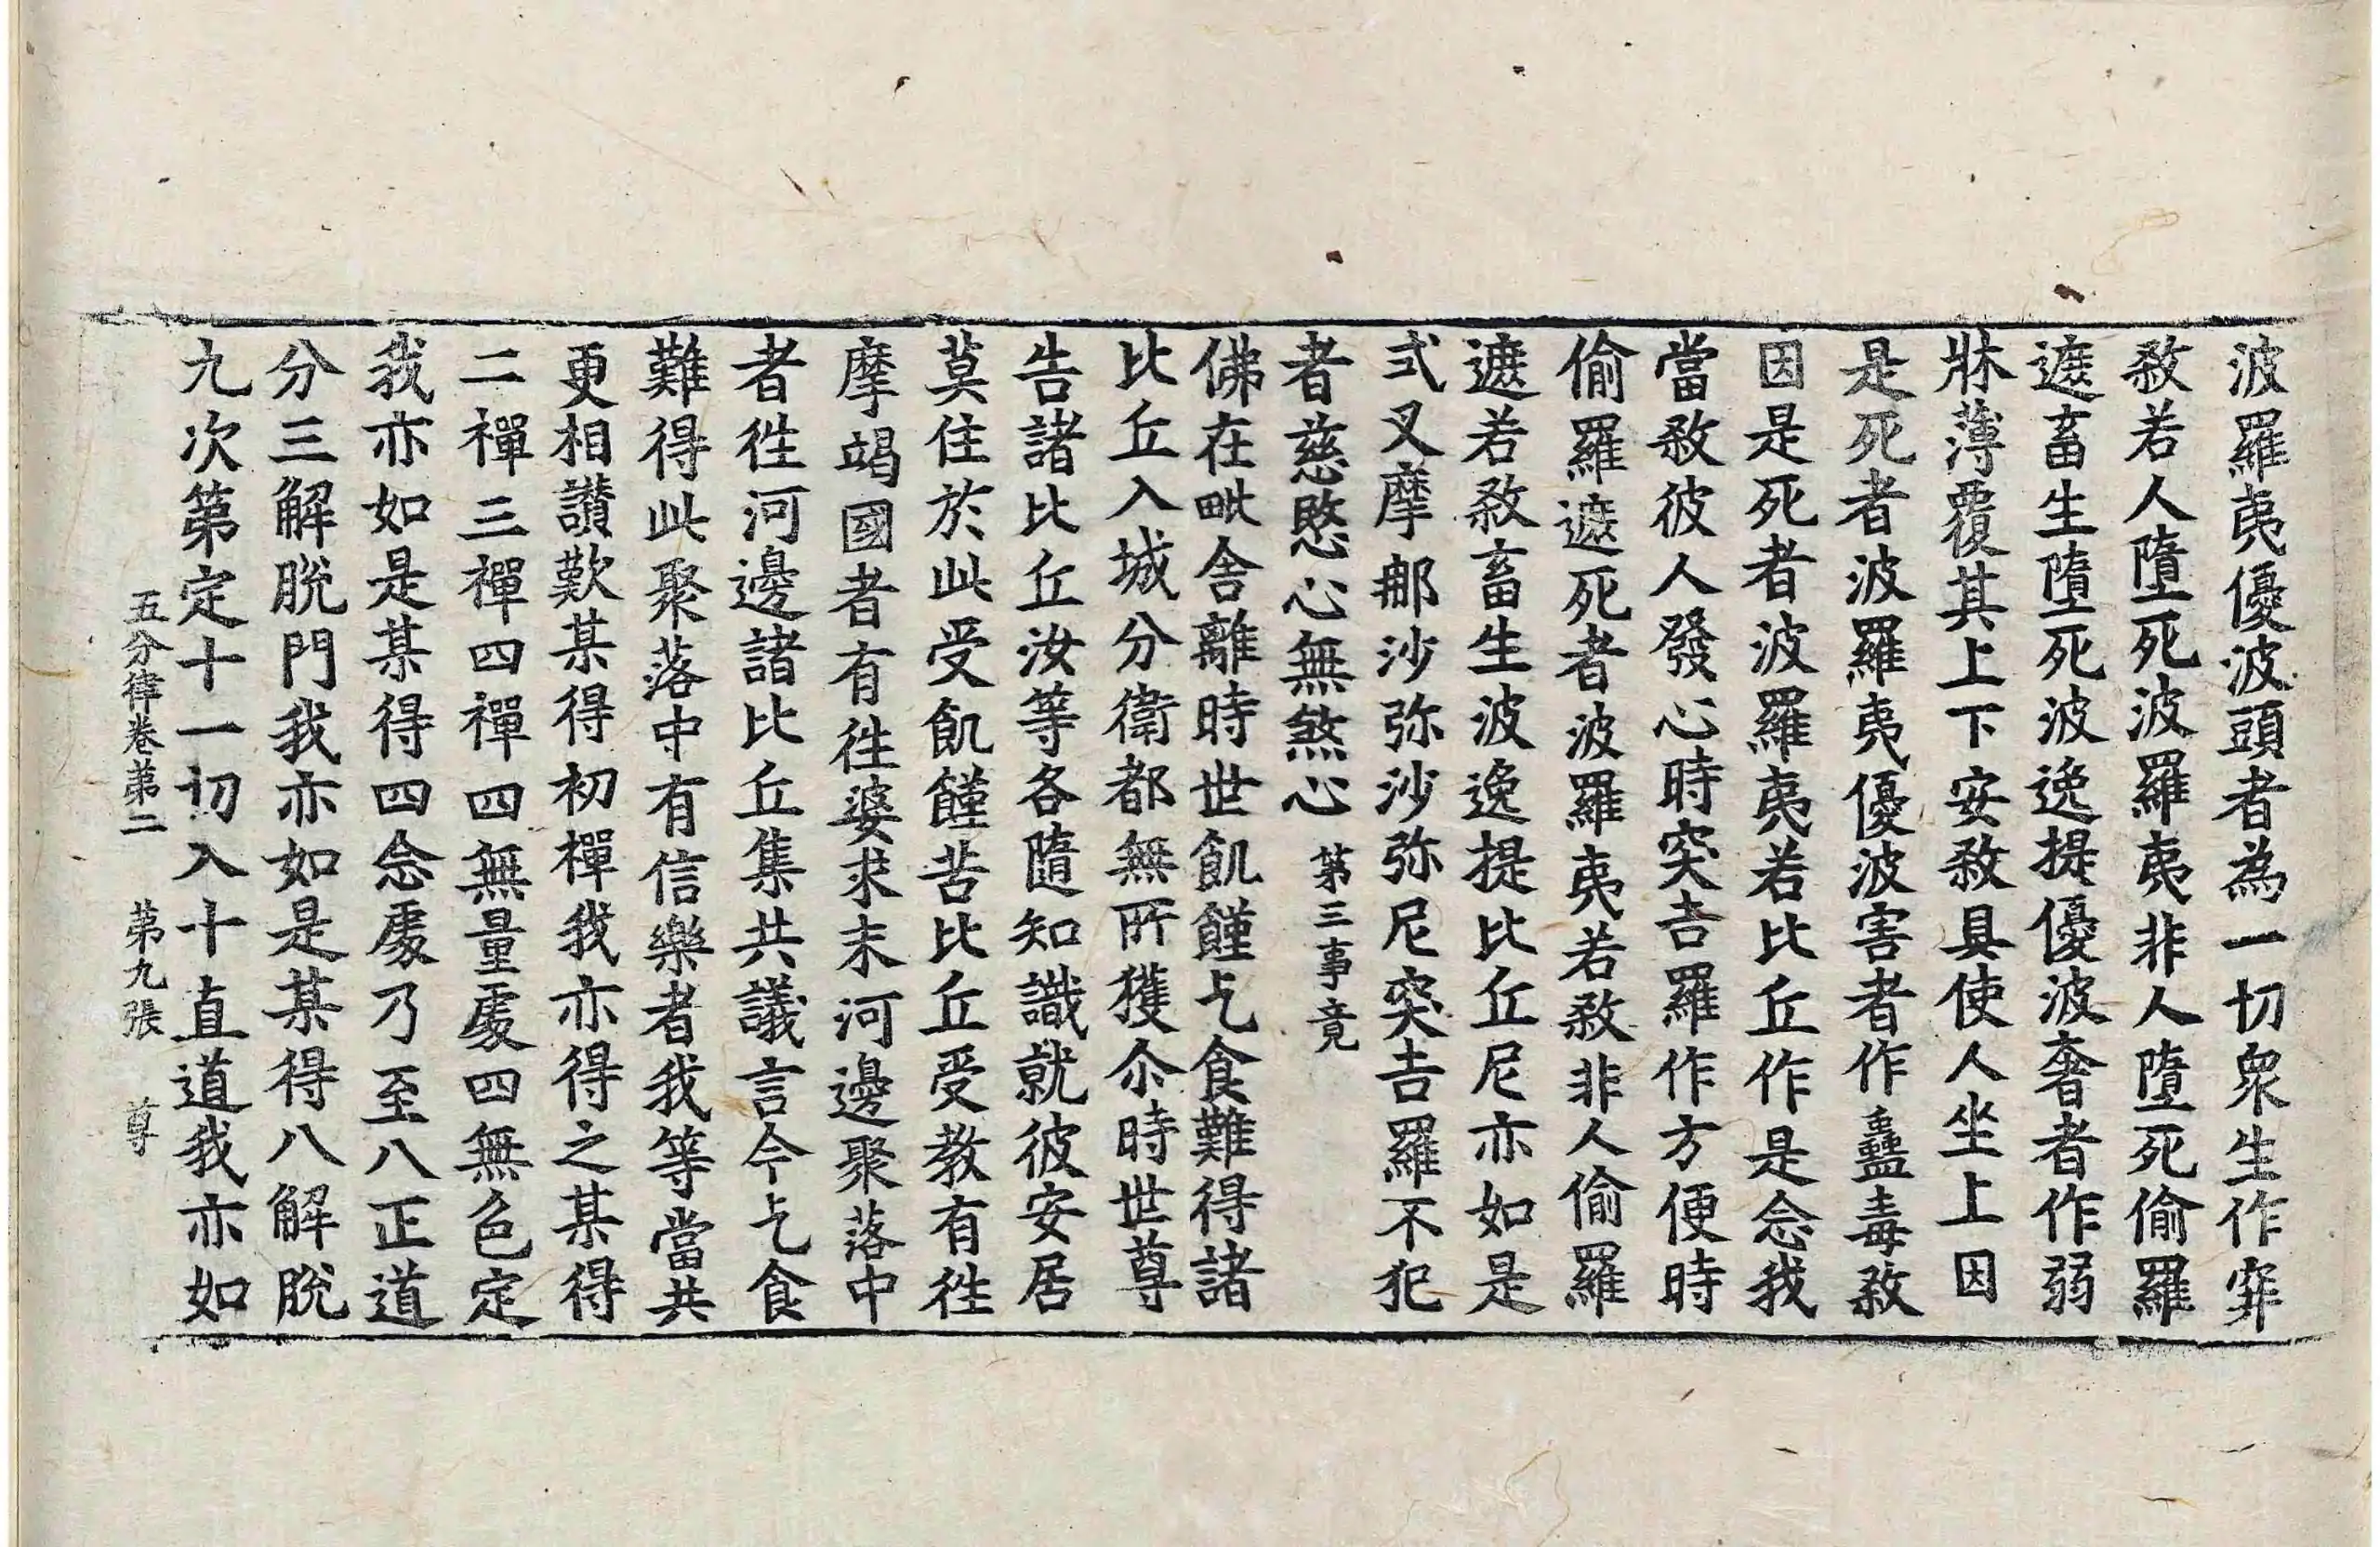 波羅夷優波頭者為一切衆生作穽
敎若人墮死波羅夷非人墮死偷羅
遮畜生墮死波逸提優波奢者作弱
牀薄覆其上下安敎具使人坐上因
是死者波羅夷優波害者作蠱毒敎
因是死者波羅夷若比丘作是念我
當敎彼人發心時突吉羅作方便時
偷羅遮死者波羅夷若敎非人偷羅
遮若敎畜生波逸提比丘尼亦如是
式叉摩郍沙弥沙弥尼突吉羅不犯
者慈愍心無煞心 第三事竟
佛在毗舍離時世飢饉乞食難得諸
比丘入城分衛都無所獲尒時世尊
告諸比丘汝等各隨知識就彼安居
莫住於此受飢饉苦比丘受教有徃
摩竭國者有徃婆求末河邊聚落中
者徃河邊諸比丘集共議言今乞食
難得此聚落中有信樂者我等當共
更相讃歎某得初禪我亦得之某得
二禪三禪四禪四無量處四無色定
我亦如是某得四念處乃至八正道
分三解脫門我亦如是某得八解脫
九次第定十一切入十直道我亦如
五分律卷第二 第九張 尊